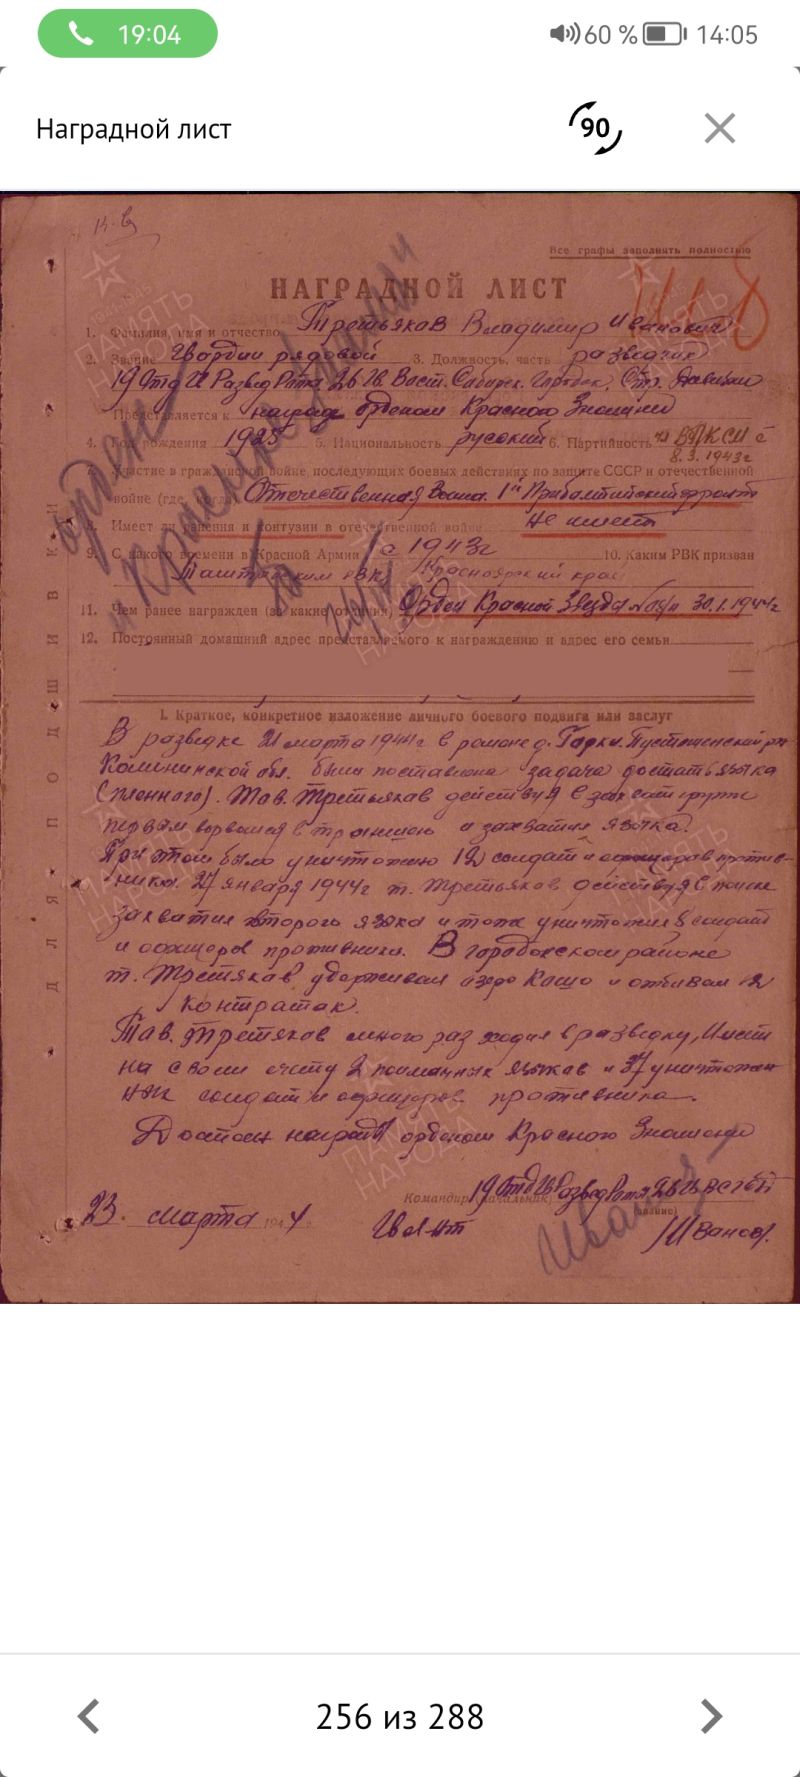 19:04
60 %
14:05
Наградной лист
90
Все графы заполнять полностью
НАГРАДНОЙ ЛИСТ
1. Фамилия, имя и отчество Третьяков Владимир Иванович
2. Звание Гвардии рядовой 3. Должность, часть разведчик
19 Отд Гв Развед Рота 26 Гв. Вост. Сибирск. Городок. Стр. Дивизии
Представляется к награде орденом Красного Знамени
4. Год рождения 1925 5. Национальность русский 6. Партийность чл ВЛКСМ с
8.3.1943г
7. Участие в гражданской войне, последующих боевых действиях по защите СССР и отечественной
войне (где, когда) Отечественная Война. 1й Прибалтийский фронт
8. Имеет ли ранения и контузии в отечественной войне не имеет
9. С какого времени в Красной Армии с 1943г 10. Каким РВК призван
Таштыпским РВК Красноярский край
11. Чем ранее награжден (за какие отличия) Орден Красной Звезды 30.1.1944г
12. Постоянный домашний адрес представляемого к награждению и адрес его семьи
I. Краткое, конкретное изложение личного боевого подвига или заслуг
В разведке 21 марта 1944г в районе д. Горки. Пустошенский р-н
Калининской обл. была поставлена задача достать языка
(пленного). Тов. Третьяков действуя в захват группе
первым ворвался в траншею и захватил языка.
При этом было уничтожено 12 солдат и офицеров против-
ника. 27 января 1944г т. Третьяков действуя в поиске
захватил второго языка и тоже уничтожил 8 солдат
и офицеров противника. В городокском районе
т. Третяков удерживал озеро Кашо и отбивал 12
контратак.
Тов. Третяков много раз ходил в разведку, имеет
на своем счету 2 пойманных языков и 37 уничтожен
ных солдат и офицеров противника.
Достоен награды орденом Красного Знамени
Командир (начальник) 19 Отд Гв Развед Рота 26 Гв ВСГСД
(звание)
23. марта 1944 г. Гв Л-нт Иванов.
ДЛЯ ПОДШИВКИ
орден
"Красное Знамя"
Иванов
ПАМЯТЬ НАРОДА
256 из 288